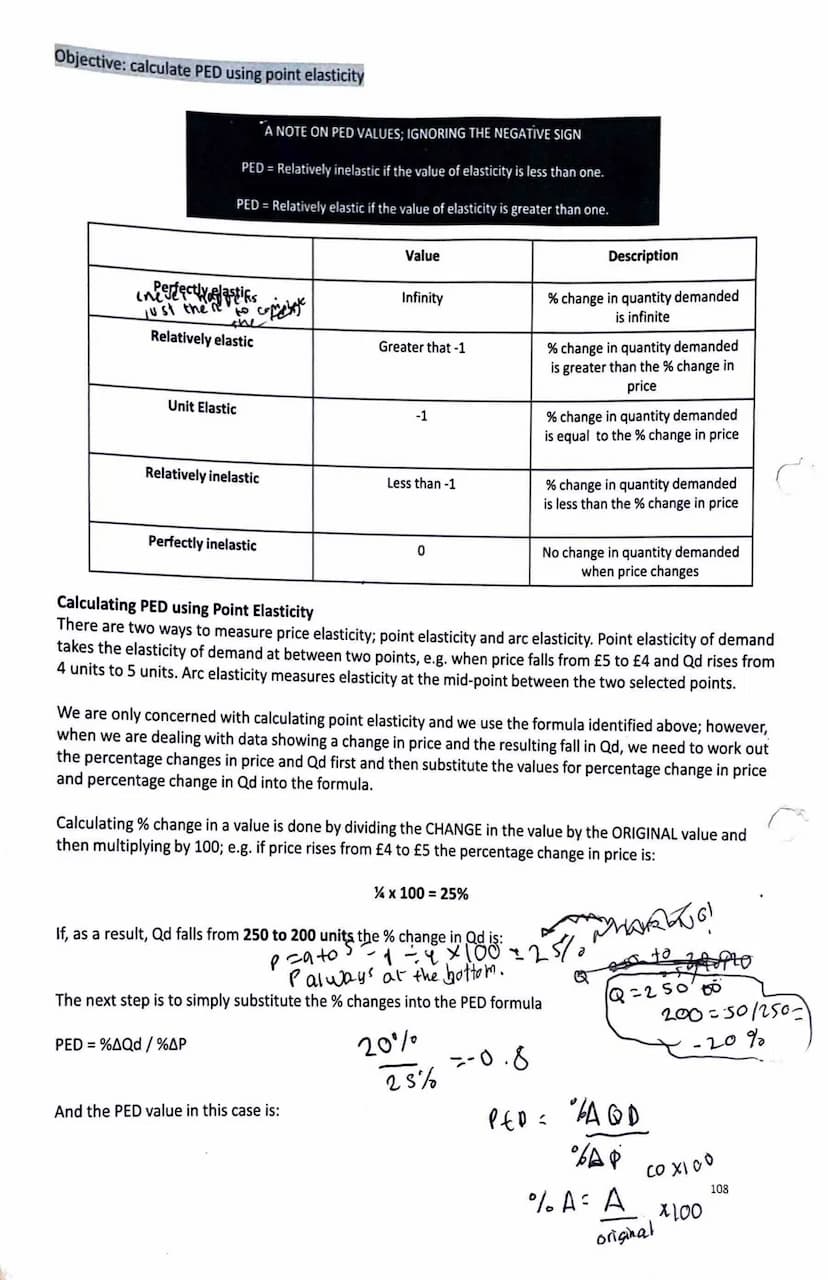 Objective: calculate PED using point elasticity
A NOTE ON PED VALUES; IGNORING THE NEGATIVE SIGN
PED = Relatively inelastic if the value of elasticity is less than one.
PED = Relatively elastic if the value of elasticity is greater than one.
Value
Description
Perfectly elastic
just there to
the
Infinity
% change in quantity demanded
is infinite
Relatively elastic
Greater that -1
% change in quantity demanded
is greater than the % change in
price
Unit Elastic
-1
% change in quantity demanded
is equal to the % change in price
Relatively inelastic
Less than -1
% change in quantity demanded
is less than the % change in price
Perfectly inelastic
0
No change in quantity demanded
when price changes
Calculating PED using Point Elasticity
There are two ways to measure price elasticity; point elasticity and arc elasticity. Point elasticity of demand
takes the elasticity of demand at between two points, e.g. when price falls from £5 to £4 and Qd rises from
4 units to 5 units. Arc elasticity measures elasticity at the mid-point between the two selected points.
We are only concerned with calculating point elasticity and we use the formula identified above; however,
when we are dealing with data showing a change in price and the resulting fall in Qd, we need to work out
the percentage changes in price and Qd first and then substitute the values for percentage change in price
and percentage change in Qd into the formula.
Calculating % change in a value is done by dividing the CHANGE in the value by the ORIGINAL value and
then multiplying by 100; e.g. if price rises from £4 to £5 the percentage change in price is:
¼ x 100 = 25%
If, as a result, Qd falls from 250 to 200 units the % change in Qd is:
x100 = 25%
P always at the bottom.
Q = 250 to
200 = 50/250 =
-20 %
The next step is to simply substitute the % changes into the PED formula
PED = %ΔQd / %ΔP
20%
25%
=-0.8
And the PED value in this case is:
PED = %Δ QD
%Δ P
x100
% Δ = Δ
original
x100
108